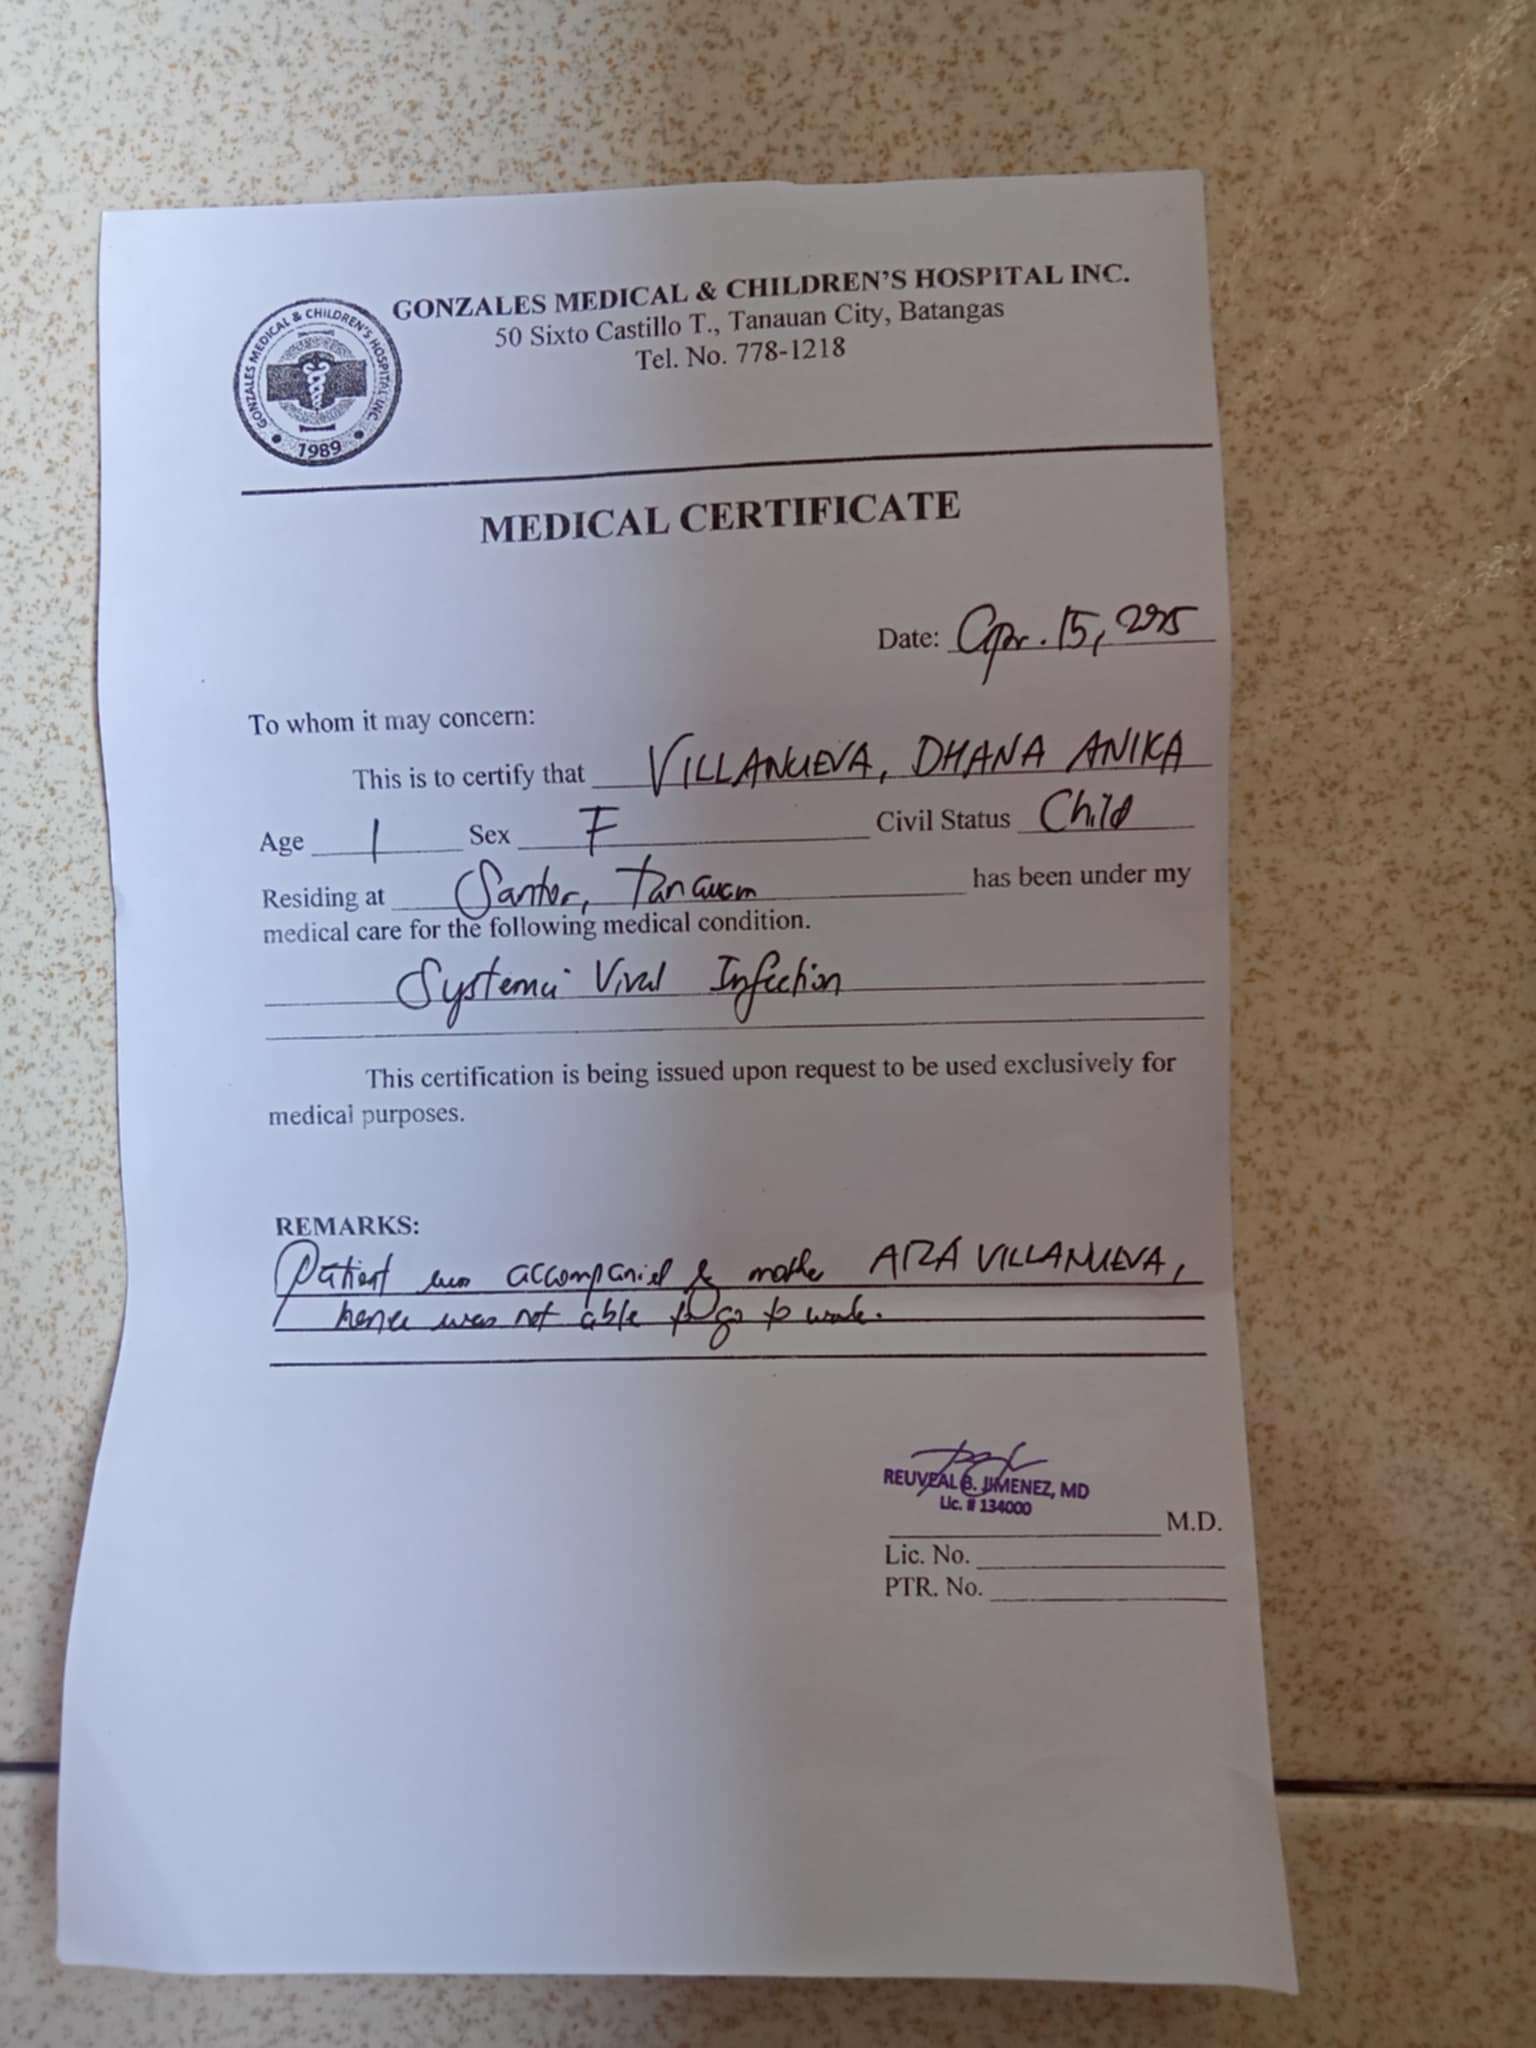 GONZALES MEDICAL & CHILDREN'S HOSPITAL INC.
50 Sixto Castillo T., Tanauan City, Batangas
Tel. No. 778-1218
GONZALES MEDICAL & CHILDREN'S HOSPITAL INC.
1989
MEDICAL CERTIFICATE
Date: Apr. 15, 2025
To whom it may concern:
This is to certify that VILLANUEVA, DHANA ANIKA
Age 1 Sex F Civil Status Child
Residing at Santor, Tanauan has been under my
medical care for the following medical condition.
Systemic Viral Infection
This certification is being issued upon request to be used exclusively for
medical purposes.
REMARKS:
Patient was accompanied by mother ARA VILLANUEVA,
hence was not able to go to work.
REUVEAL B. JIMENEZ, MD
Lic. # 134000
M.D.
Lic. No.
PTR. No.